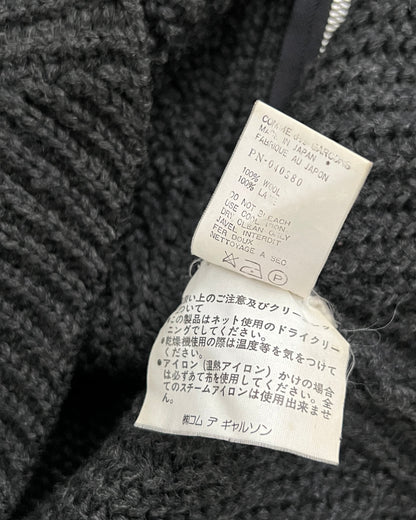 COMME des GARCONS
MADE IN JAPAN
FABRIQUE AU JAPON
PN-040380
100% WOOL
100% LAINE
DO NOT BLEACH
USE COOL IRON
DRY CLEAN ONLY
JAVEL INTERDIT
FER DOUX
NETTOYAGE A SEC
P
扱い上のご注意及びクリー
ついて
この製品はネット使用のドライクリー
ニングでしてください。
●乾燥機使用の際は温度等を気をつけて
ください。
●アイロン(温熱アイロン)かけの場合
は必ずあて布を使用してください。全
てのスチームアイロンは使用出来ませ
ん。
㈱コム デ ギャルソン